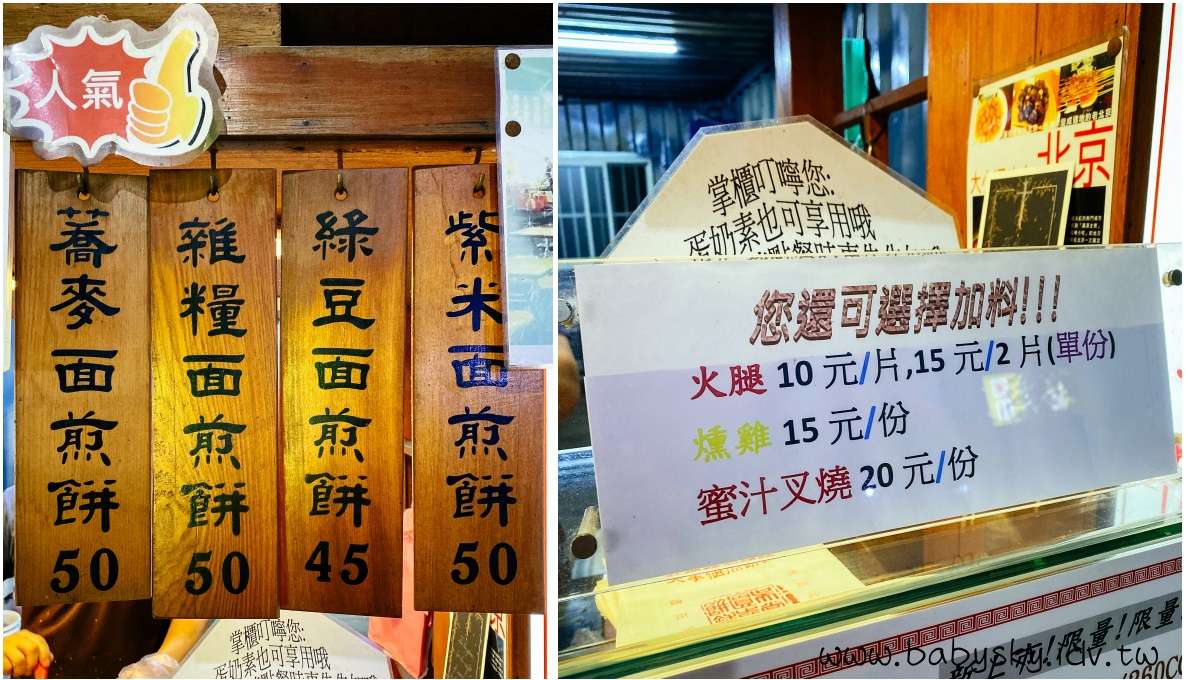 人氣
蕎麥面煎餅50
雜糧面煎餅50
綠豆面煎餅45
紫米面煎餅50
掌櫃叮嚀您:
蛋奶素也可享用哦
掌櫃叮嚀您:
蛋奶素也可享用哦
北京
您還可選擇加料!!!
火腿 10 元/片,15 元/2 片(單份)
燻雞 15 元/份
蜜汁叉燒 20 元/份
限量!限量!
www.babysky.idv.tw